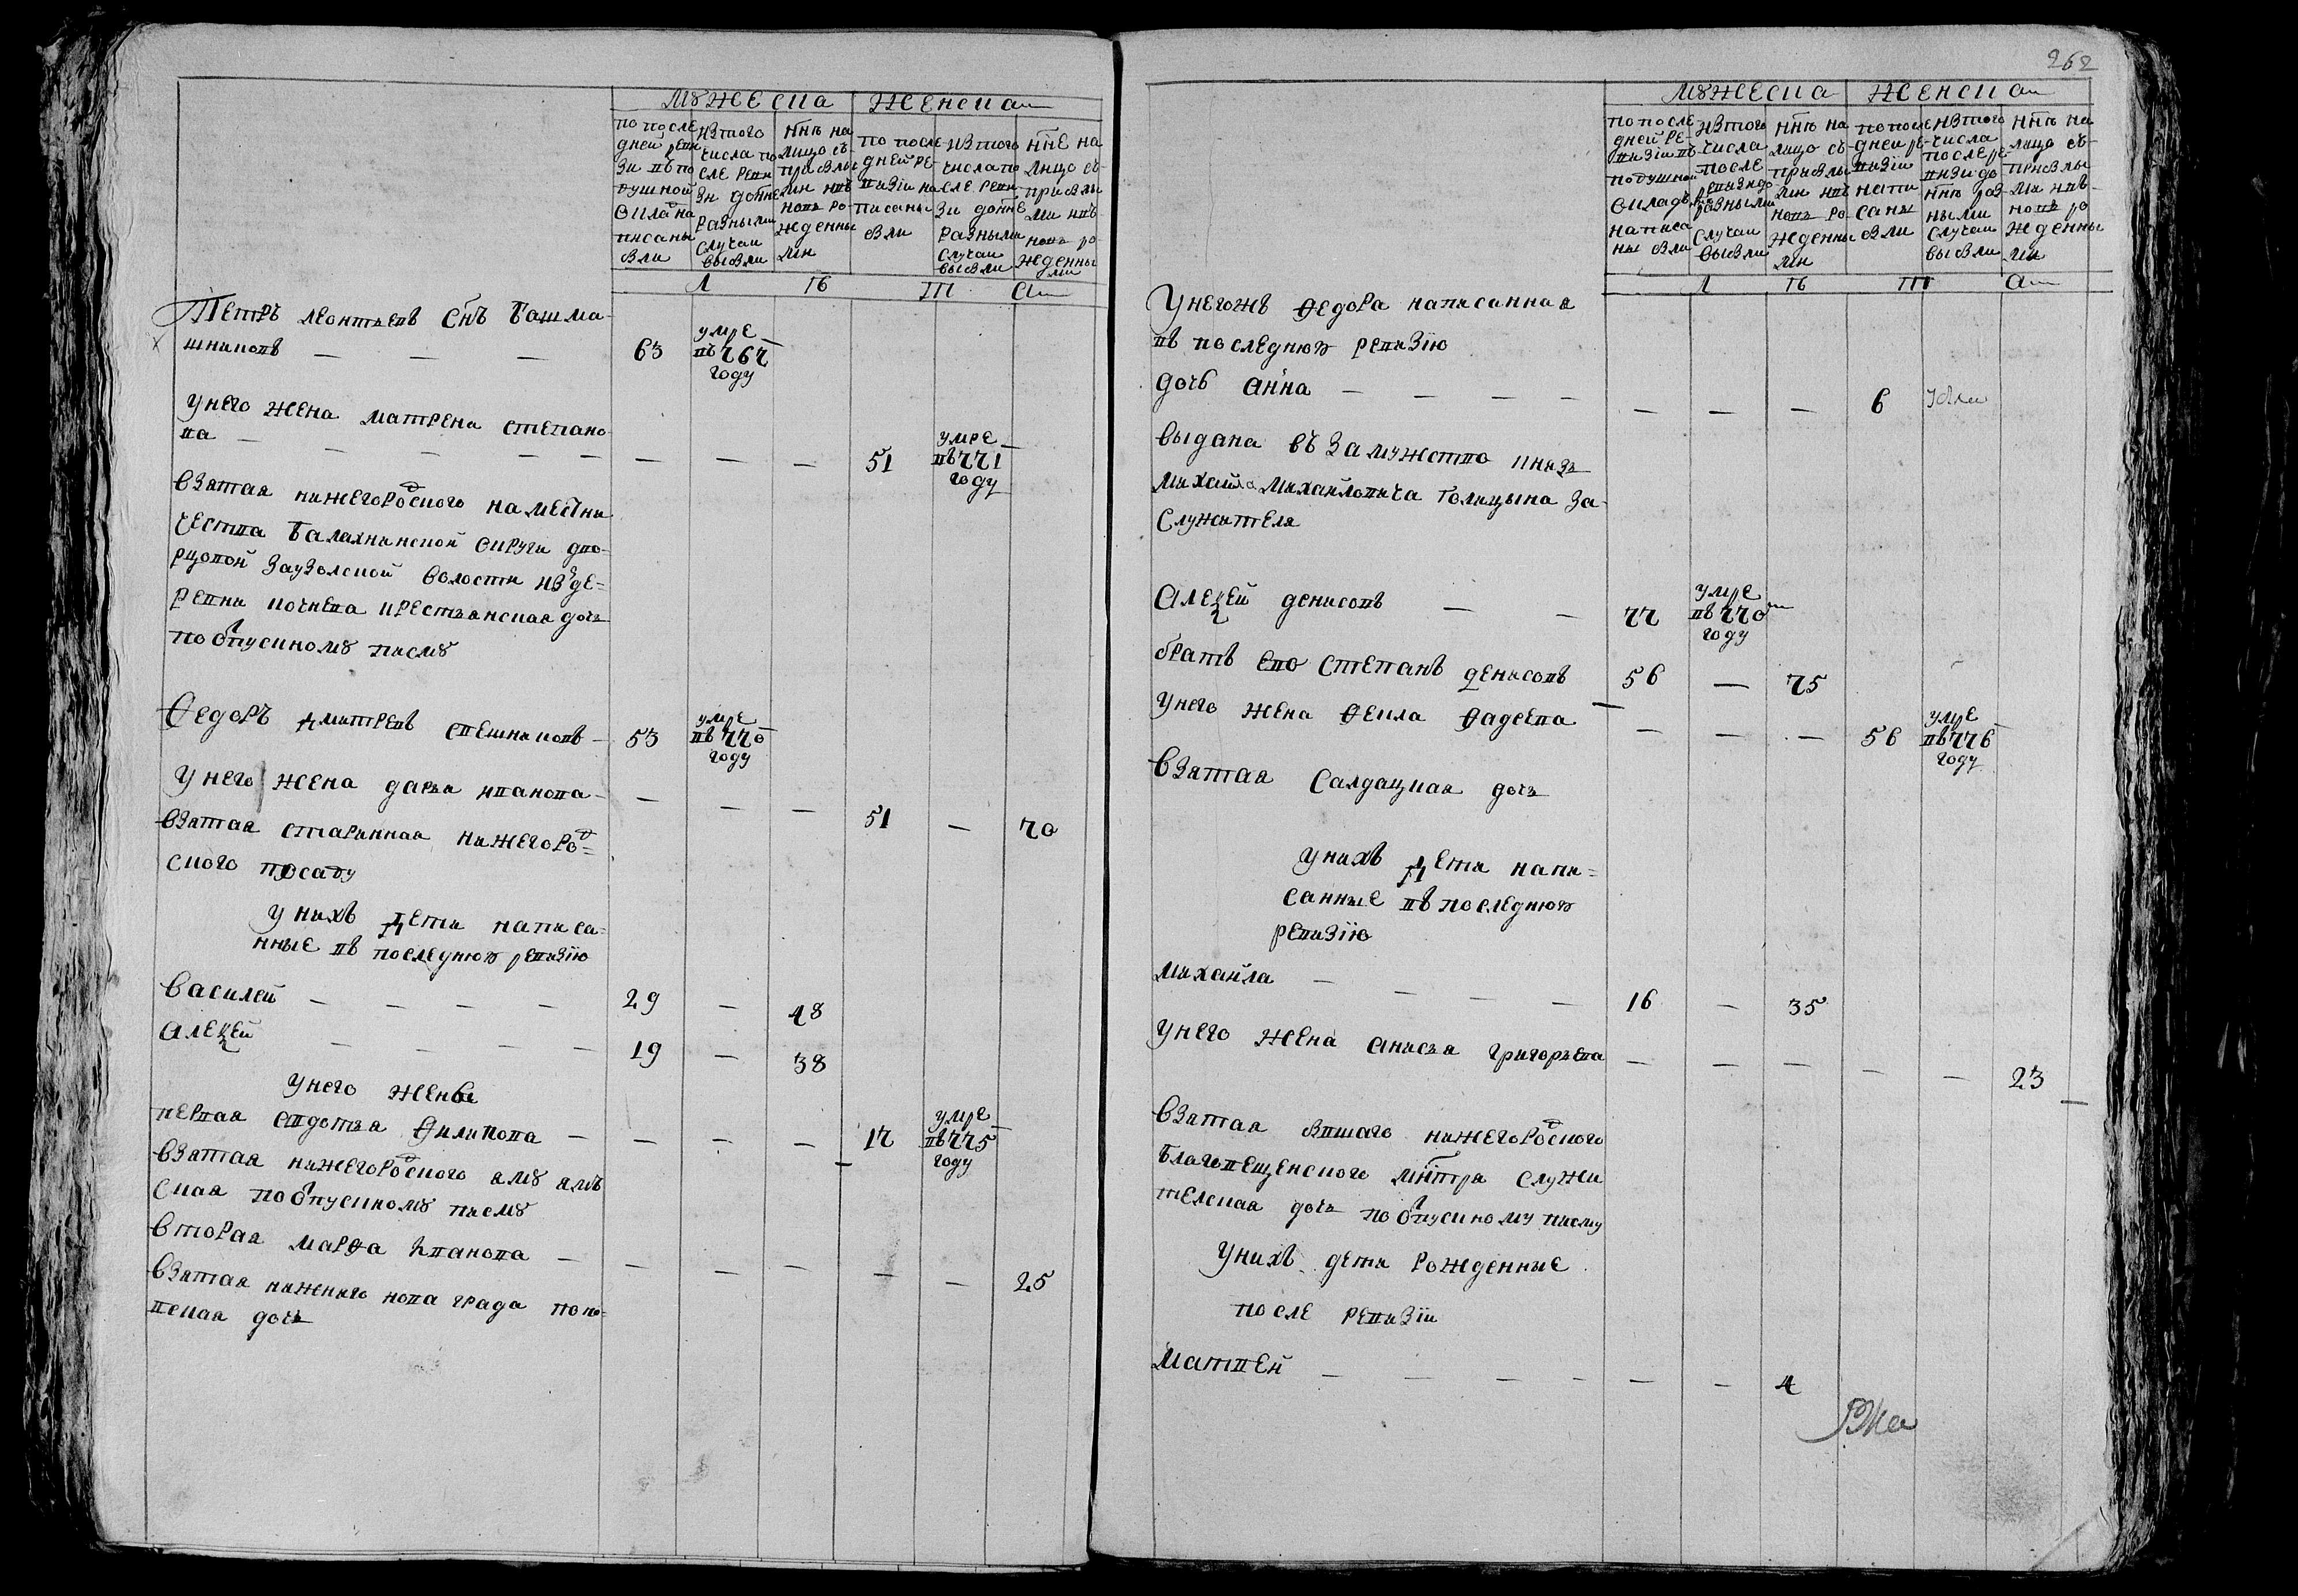 Мȣжеска
Женска
по после
дней реви
зи въ по
душной
окла на
писаны
были
изтого
числа по
сле реви
зи до нне
разными
случаи
выбыли
ннѣ на
лицо съ
прибылы
ми и въ
новь ро
жденны
ми
по после
дней ре
визiи на
писаны
были
изтого
числа по
сле реви
зи до нне
разными
случаи
выбыли
нне на
лицо съ
прибылы
ми и въ
новь ро
жденны
ми
Л Ѣ Т А
Петръ леонтьевъ снъ Башма
шниковъ — — — 63 умре въ 767 году
У него жена матрена степано
ва — — — — — — — — 51 умре въ 771 году
взятая нижегородского наместни
чества Балахнинской округи дво
рцовой заузолской волости изъ де=
ревни почнева крестьянская дочь
по отпускномȣ писмȣ
Ѳедоръ дмитревъ свешниковъ — 53 умре въ 770 году
У него жена дарья иванова — — — — 51 — 70
взятая старинная нижегоро=
ского посаду
У нихъ дети написа-
нные въ последнюю ревизiю
Василей — — — — 29 — 48
Алеѯей — — — — 19 — 38
У него жены
первая авдотья Филипова — — — — 17 умре въ 775 году
взятая нижегородского ямȣ ямъ
ская по отпускномȣ писмȣ
вторая марѳа Иванова — — — — — — 25
взятая нижнего нова града попо
вская дочь
262
Мȣжеска
Женска
по после
дней ре-
визiи въ
подушной
окладъ
написа
ны были
изтого
числа
после
ревизи до
ннѣ
разными
случаи
выбыли
ннѣ на
лицо съ-
прибылы
ми и въ
новь ро-
жденны
ми
по после
дней ре-
визiи
напи
саны
были
изтого
числа
после ре-
визи до
ннѣ раз-
ными
случаи
выбыли
ннѣ на
лицо съ-
прибылы
ми и въ-
новь ро
жденны
ми
Л Ѣ Т А
У негожъ Ѳедора написанная
въ последнюю ревизiю
дочь анна — — — — — — — 6
выдана въ замужство князь
михайла михайловича голицына за-
служителя
Алеѯей денисовъ — — 77 умре въ 770 году
братъ ево степанъ денисовъ 56 — 75
У него жена Ѳекла Ѳадеева — — — 56 умре въ 776 году
взятая салдацкая дочь
У нихъ дети напи=
санные въ последнюю
ревизiю
михайла — — — — 16 — 35
У него жена анисья григорьева — — — — — 23
взятая бывшаго нижегородского
Благовещенского мнтря служи
телская дочь по отпускному писму
У нихъ дети рожденные
после ревизiи
матвей — — — — — — 4